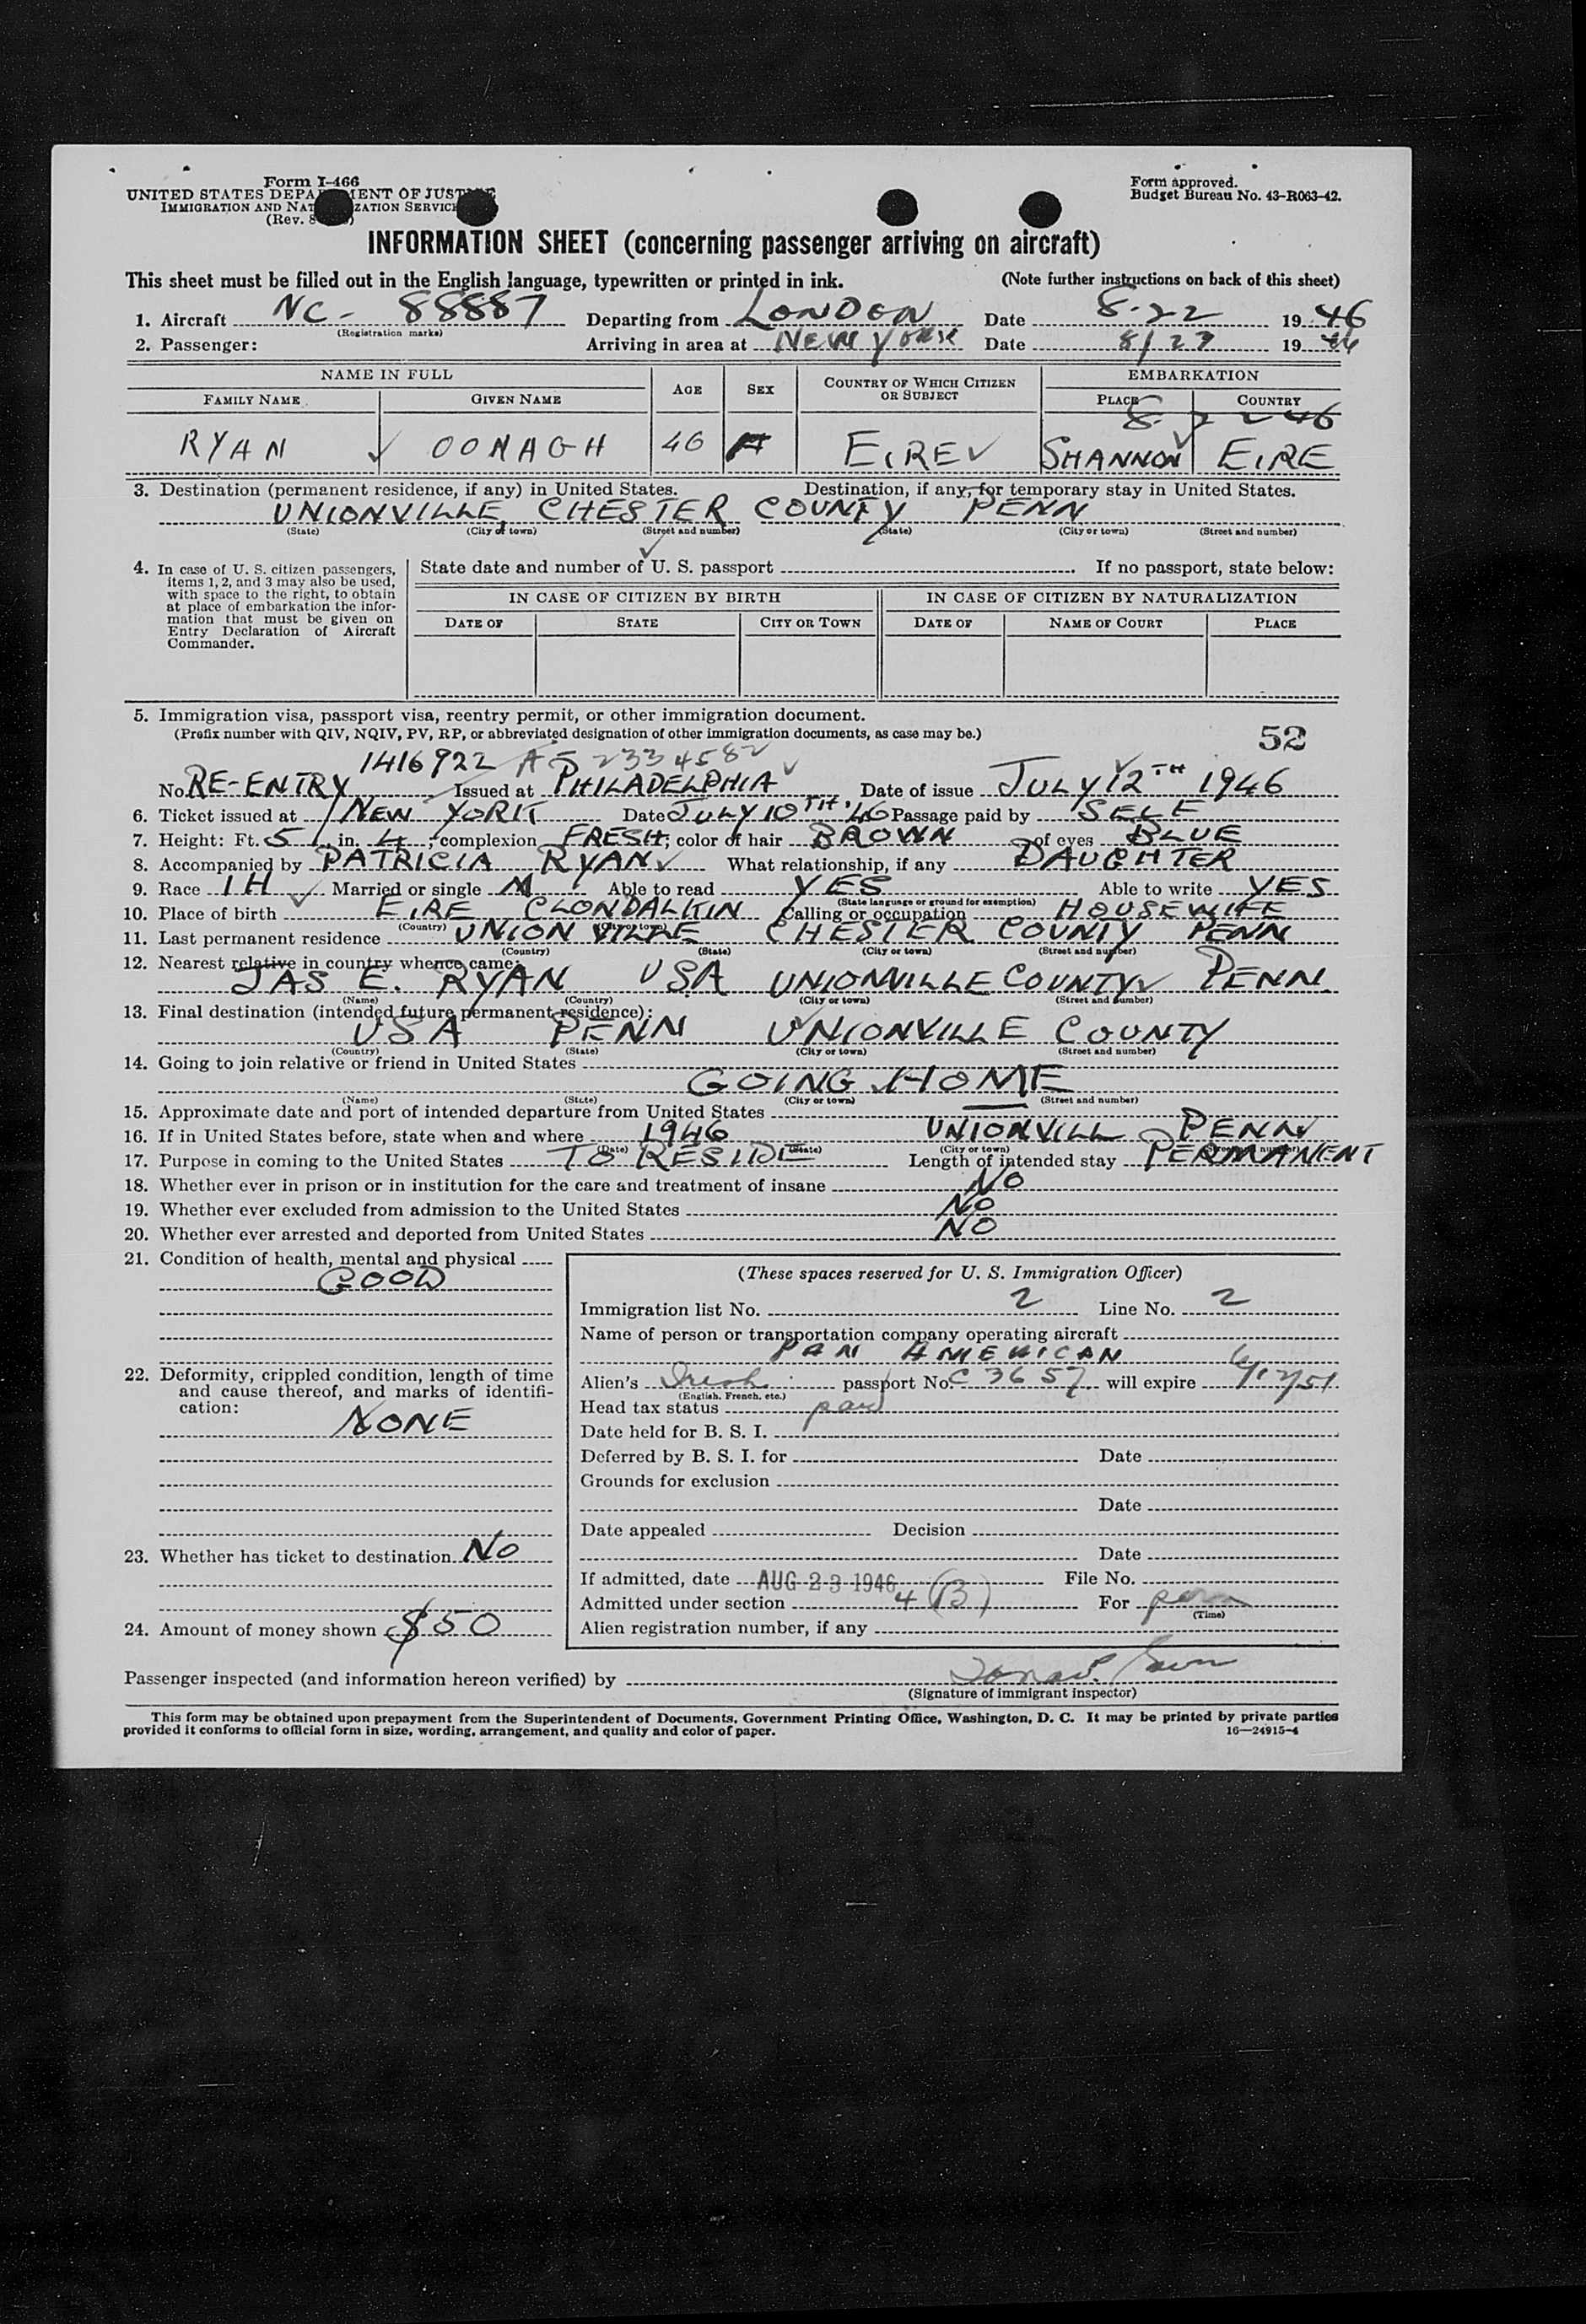 Form I-466
UNITED STATES DEPARTMENT OF JUSTICE
IMMIGRATION AND NATURALIZATION SERVICE
(Rev. 8
Form approved.
Budget Bureau No. 43-R063-42.
INFORMATION SHEET (concerning passenger arriving on aircraft)
This sheet must be filled out in the English language, typewritten or printed in ink. (Note further instructions on back of this sheet)
1. Aircraft NC- 88887 Departing from LONDON Date 8-22 1946
(Registration marks)
2. Passenger: Arriving in area at NEW YORK Date 8/23 1946
NAME IN FULL AGE SEX COUNTRY OF WHICH CITIZEN OR SUBJECT EMBARKATION
FAMILY NAME GIVEN NAME PLACE COUNTRY
8-22-46
RYAN OONAGH 46 EIRE SHANNON EIRE
3. Destination (permanent residence, if any) in United States. Destination, if any, for temporary stay in United States.
UNIONVILLE, CHESTER COUNTY PENN
(State) (City or town) (Street and number) (State) (City or town) (Street and number)
4. In case of U. S. citizen passengers, items 1, 2, and 3 may also be used, with space to the right, to obtain at place of embarkation the information that must be given on Entry Declaration of Aircraft Commander.
State date and number of U. S. passport If no passport, state below:
IN CASE OF CITIZEN BY BIRTH IN CASE OF CITIZEN BY NATURALIZATION
DATE OF STATE CITY OR TOWN DATE OF NAME OF COURT PLACE
5. Immigration visa, passport visa, reentry permit, or other immigration document.
(Prefix number with QIV, NQIV, PV, RP, or abbreviated designation of other immigration documents, as case may be.) 52
1416922 A5 2334582
No. RE-ENTRY Issued at PHILADELPHIA Date of issue JULY 12TH 1946
6. Ticket issued at NEW YORK Date JULY 10TH. 46 Passage paid by SELF
7. Height: Ft. 5 in. 4; complexion FRESH; color of hair BROWN of eyes BLUE
8. Accompanied by PATRICIA RYAN What relationship, if any DAUGHTER
9. Race IH Married or single M Able to read YES Able to write YES
(State language or ground for exemption)
10. Place of birth EIRE CLONDALKIN Calling or occupation HOUSEWIFE
(Country) (City or town)
11. Last permanent residence UNIONVILLE CHESTER COUNTY PENN
(Country) (State) (City or town) (Street and number)
12. Nearest relative in country whence came:
JAS E. RYAN USA UNIONVILLE COUNTY PENN
(Name) (Country) (City or town) (Street and number)
13. Final destination (intended future permanent residence):
USA PENN UNIONVILLE COUNTY
(Country) (State) (City or town) (Street and number)
14. Going to join relative or friend in United States
GOING HOME
(Name) (State) (City or town) (Street and number)
15. Approximate date and port of intended departure from United States
16. If in United States before, state when and where 1946 UNIONVILL PENN
(Date) (State) (City or town) (Street and number)
17. Purpose in coming to the United States TO RESIDE Length of intended stay PERMANENT
18. Whether ever in prison or in institution for the care and treatment of insane NO
19. Whether ever excluded from admission to the United States NO
20. Whether ever arrested and deported from United States NO
21. Condition of health, mental and physical
GOOD
22. Deformity, crippled condition, length of time and cause thereof, and marks of identification:
NONE
23. Whether has ticket to destination NO
24. Amount of money shown $50
(These spaces reserved for U. S. Immigration Officer)
Immigration list No. 2 Line No. 2
Name of person or transportation company operating aircraft
PAN AMERICAN
Alien's Irish passport No. C 3657 will expire 6/12/51
(English, French, etc.)
Head tax status paid
Date held for B. S. I.
Deferred by B. S. I. for Date
Grounds for exclusion
Date
Date appealed Decision
Date
If admitted, date AUG 23 1946 File No.
Admitted under section 4 (B) For perm
(Time)
Alien registration number, if any
Passenger inspected (and information hereon verified) by
(Signature of immigrant inspector)
This form may be obtained upon prepayment from the Superintendent of Documents, Government Printing Office, Washington, D. C. It may be printed by private parties
provided it conforms to official form in size, wording, arrangement, and quality and color of paper. 16—24915-4